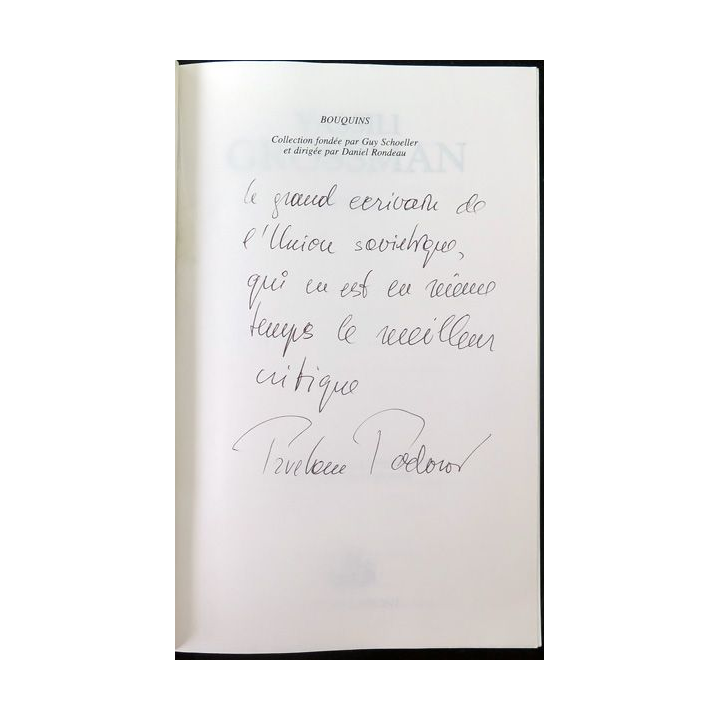 BOUQUINS
Collection fondée par Guy Schoeller
et dirigée par Daniel Rondeau
GROSSMAN
le grand ecrivain de
l'Union sovietique,
qui en est en même
temps le meilleur
critique
Tzvetan Todorov